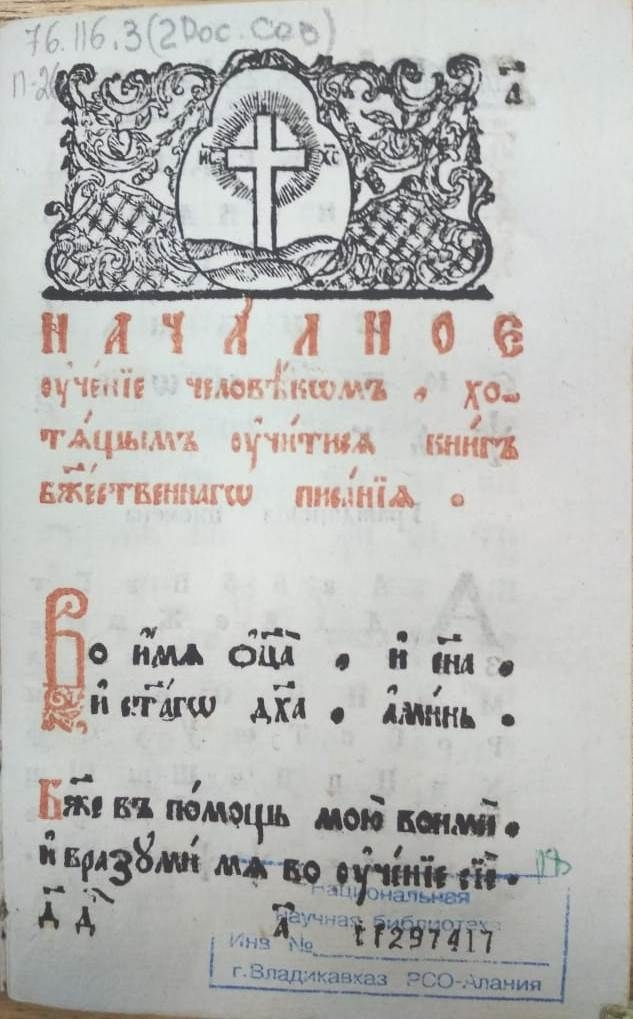 76.116.3(2Рос.Сев)
П-26
а҃
І҃С Х҃С
НАЧА́ЛНОЕ
ᲂу҆че́нїе человѣ́кѡмъ , хо-
тѧ́щымъ ᲂу҆чи́тисѧ кни́гъ
бж҃е́ственнагѡ писа́нїѧ .
Во и҆́мѧ ѻ҆ц҃а̀ , и҆ сн҃а ,
и҆ ст҃а́гѡ дх҃а , а҆ми́нь ,
Бж҃е въ по́мощь мою̀ вонмѝ ,
и҆ вразꙋмѝ мѧ во ᲂу҆че́нїе сїѐ .
д҃ д҃ а҃
Национальная
Научная библиотека
Инв № 297417
г.Владикавказ РСО-Алания